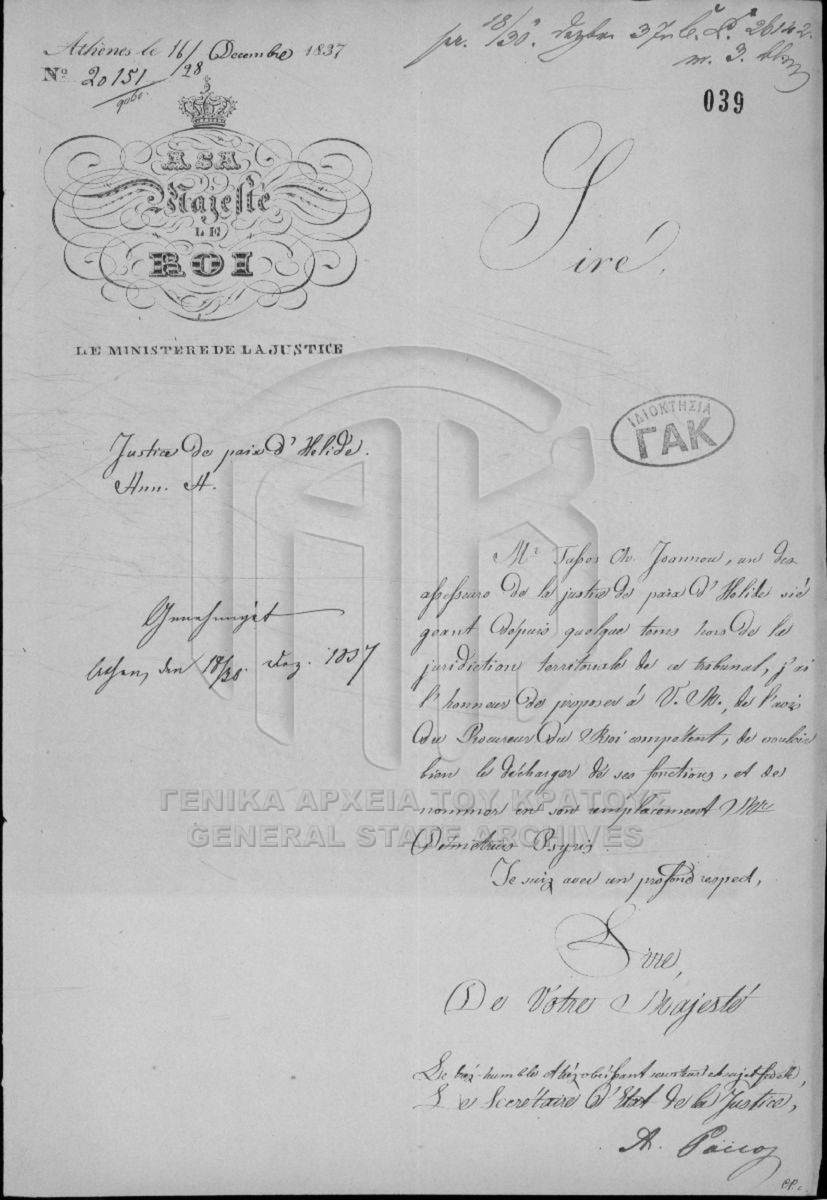 Athènes le 16/28 Decembre 1837
Nº 20151
pr. 18/30. Dezbr. 37
039
A SA
Majesté
LE
ROI
LE MINISTERE DE LA JUSTICE
Siré,
ΙΔΙΟΚΤΗΣΙΑ
ΓΑΚ
Justice de paix d'Helide.
Ann. A.
Mr Tassos Ch. Joannou, un des
assesseurs de la justice de paix d'Helide sié
geant depuis quelque tems hors de la
juridiction territoriale de ce tribunal, j'ai
l'honneur de proposer à V. M., de l'avis
du Procureur du Roi compétent, de vouloir
bien le décharger de ses fonctions, et de
nommer en son remplacement Mr
Demetrius Psyris.
Je suis avec un profond respect,
Genehmigt
Athen, den 18/30. Dez. 1837
ΓΕΝΙΚΑ ΑΡΧΕΙΑ ΤΟΥ ΚΡΑΤΟΥΣ
GENERAL STATE ARCHIVES
Sire,
De Votre Majesté
Le très-humble et très obéissant serviteur et sujet fidèle,
Le Secrétaire d'Etat de la Justice,
A. Païcos